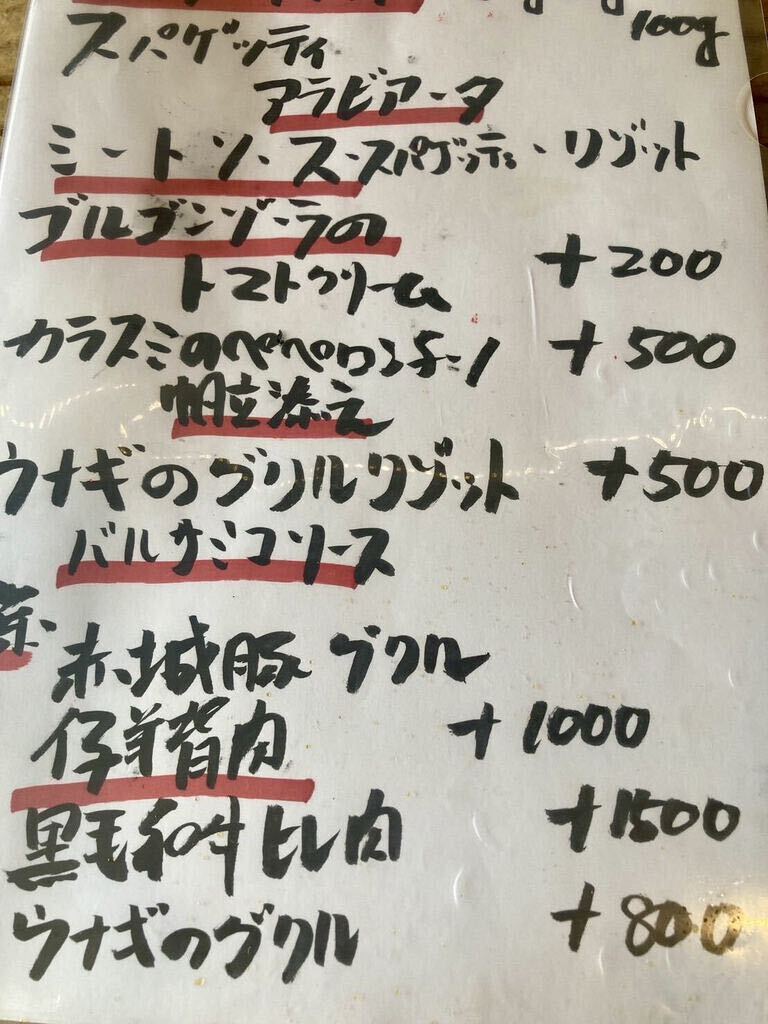 100g
スパゲッティ
アラビアータ
ミートソーススパゲッティ・リゾット
ゴルゴンゾーラの
トマトクリーム +200
カラスミのペペロンチーノ +500
帆立添え
ウナギのグリルリゾット +500
バルサミコソース
赤城豚グリル
仔羊背肉 +1000
黒毛和牛ヒレ肉 +1500
ウナギのグリル +800